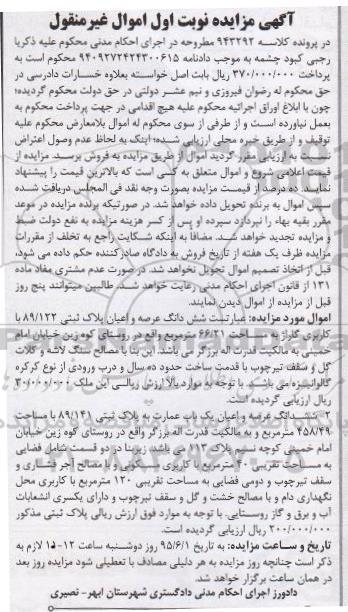 آگهی مزایده نوبت اول اموال غیرمنقول
در پرونده کلاسه ۹۴۳۲۹۲ مطروحه در اجرای احکام مدنی محکوم علیه ذکریا
رجبی کبود چشمه به موجب دادنامه ۹۴۰۹۲۷۲۴۲۴۳۰۰۶۱۵ محکوم است به
پرداخت ۳۷۰/۰۰۰/۰۰۰ ریال بابت اصل خواسته بعلاوه خسارات دادرسی در
حق محکوم له رضوان فیروزی و نیم عشر دولتی در حق دولت محکوم گردیده؛
چون با ابلاغ اوراق اجرائیه محکوم علیه هیچ اقدامی در جهت پرداخت محکوم به
بعمل نیاورده است و از طرفی از سوی محکوم له اموال بلامعارض محکوم علیه
توقیف و از طریق خبره محلی ارزیابی شده؛ اینک به لحاظ عدم وصول اعتراض
نسبت به ارزیابی مقرر گردید اموال از طریق مزایده به فروش برسد. مزایده از
قیمت اعلامی شروع و اموال متعلق به کسی است که بالاترین قیمت را پیشنهاد
نماید. ده درصد از قیمت مزایده بصورت وجه نقد فی المجلس دریافت شده
سپس اموال به برنده تحویل داده خواهد شد. در صورتیکه برنده مزایده در موعد
مقرر بقیه بهاء را نپردازد سپرده او پس از کسر هزینه مزایده به نفع دولت ضبط
و مزایده تجدید خواهد شد. مضافا به اینکه شکایت راجع به تخلف از مقررات
مزایده ظرف یک هفته از تاریخ فروش به دادگاه صادرکننده حکم داده می شود،
قبل از اتخاذ تصمیم اموال تحویل نخواهد شد. در صورت عدم مشتری مفاد ماده
۱۳۱ از قانون اجرای احکام مدنی رعایت خواهد شد. طالبین میتوانند پنج روز
قبل از مزایده از اموال دیدن نمایند.
اموال مورد مزایده: عبارتست شش دانگ عرصه و اعیان پلاک ثبتی ۸۹/۱۲۲ با
کاربری گاراژ به مساحت ۶۶/۲۱ مترمربع واقع در روستای کوه زین خیابان امام
خمینی به مالکیت قدرت اله برزگر می باشد. این بنا با مصالح سنگ لاشه و کلات
گل و سقف تیرچوب با قدمت ساخت حدود ده سال و درب ورودی از نوع کرکره
گالوانیزه می باشد. با توجه به موارد بالا ارزش ریالی این ملک ۳۰/۰۰۰/۰۰۰
ریال ارزیابی گردیده است.
۲- ششدانگ عرصه و اعیان یک باب عمارت به پلاک ثبتی ۸۹/۱۴۱ با مساحت
۴۵۸/۴۹ مترمربع و به مالکیت قدرت اله برزگر واقع در روستای کوه زین خیابان
امام خمینی کوچه نسیم پلاک ۲ می باشد. زیربنا در دو قسمت شامل فضایی
به مساحت تقریبی ۴۰ مترمربع با کاربری مسکونی و با مصالح آجر فشاری و
سقف تیرچوب و دومی فضایی به مساحت تقریبی ۱۲۰ مترمربع با کاربری محل
نگهداری دام و با مصالح خشت و گل و سقف تیرچوب و دارای یکسری انشعابات
آب و برق و گاز روستایی. با توجه به موارد فوق ارزش ریالی پلاک ثبتی مذکور
۲۰۰/۰۰۰/۰۰۰ ریال ارزیابی گردیده است.
تاریخ و ساعت مزایده: به تاریخ ۹۵/۶/۱ روز دوشنبه ساعت ۱۲-۱۵ لازم به
ذکر است چنانچه روز مزایده به هر دلیلی مصادف با تعطیلی شود مزایده روز بعد
در همان ساعت برگزار خواهد شد.
دادورز اجرای احکام مدنی دادگستری شهرستان ابهر- نصیری